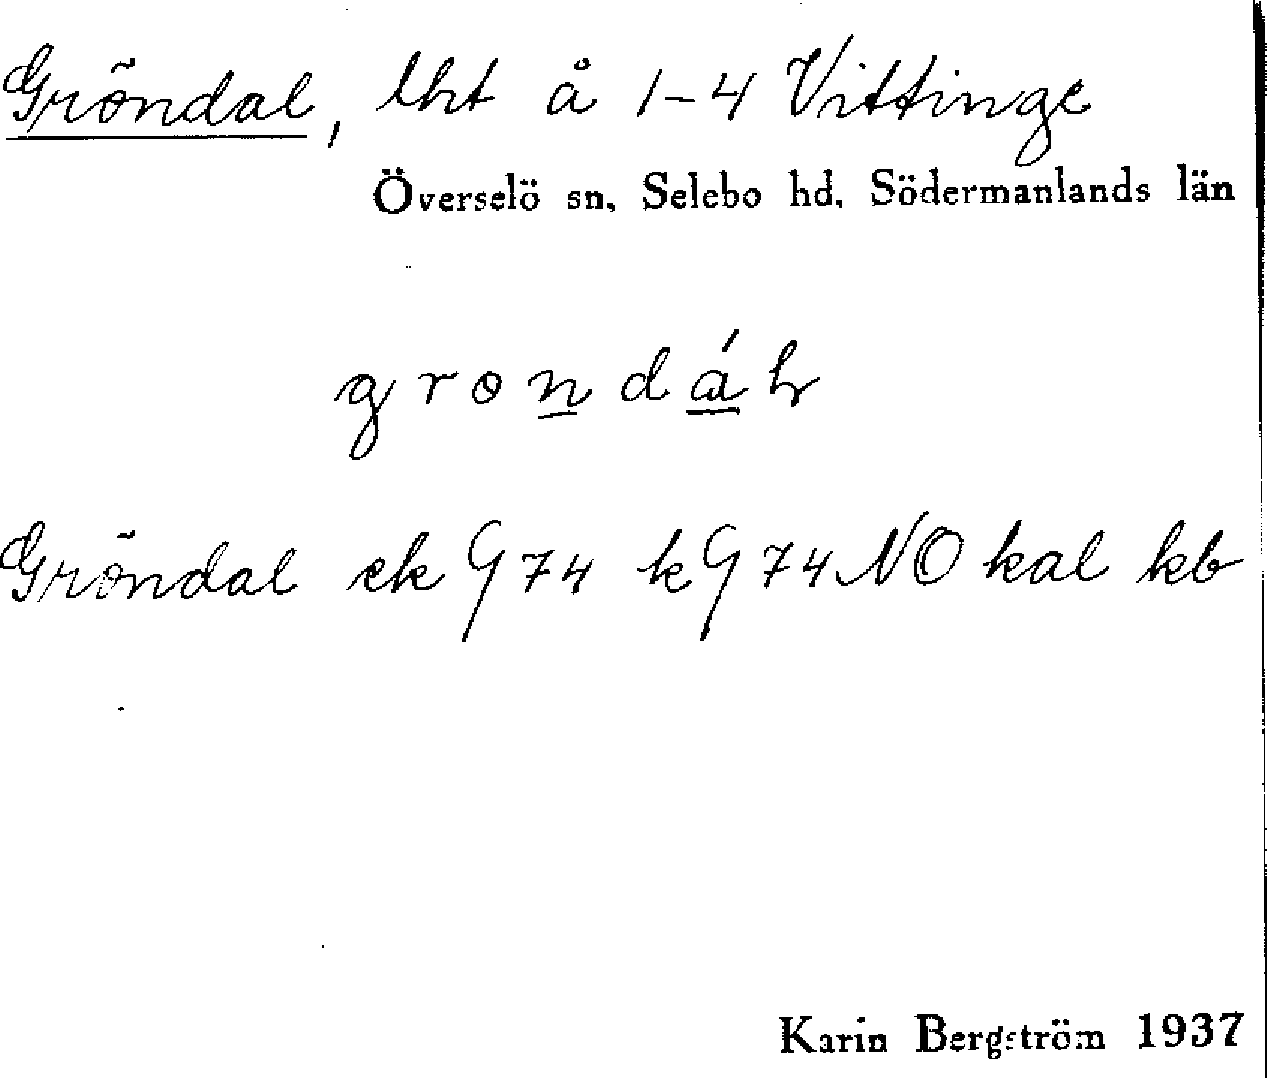 Gröndal, lht å 1-4 Vittinge
Överselö sn, Selebo hd, Södermanlands län
Gröndal ek G 74 k G 74 NO kal kb
Karin Bergström 1937